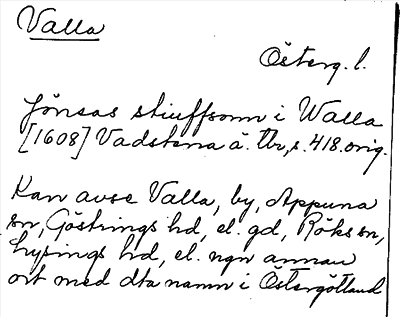 Valla
Österg. l.
Jönsas stiuffsonn i Walla
[1608] Vadstena ä. Tb, s. 418. orig.
Kan avse Valla, by, Appuna
sn, Göstrings hd, el. gd, Röks sn,
Lysings hd, el. ngn annan
ort med dta namn i Östergötland